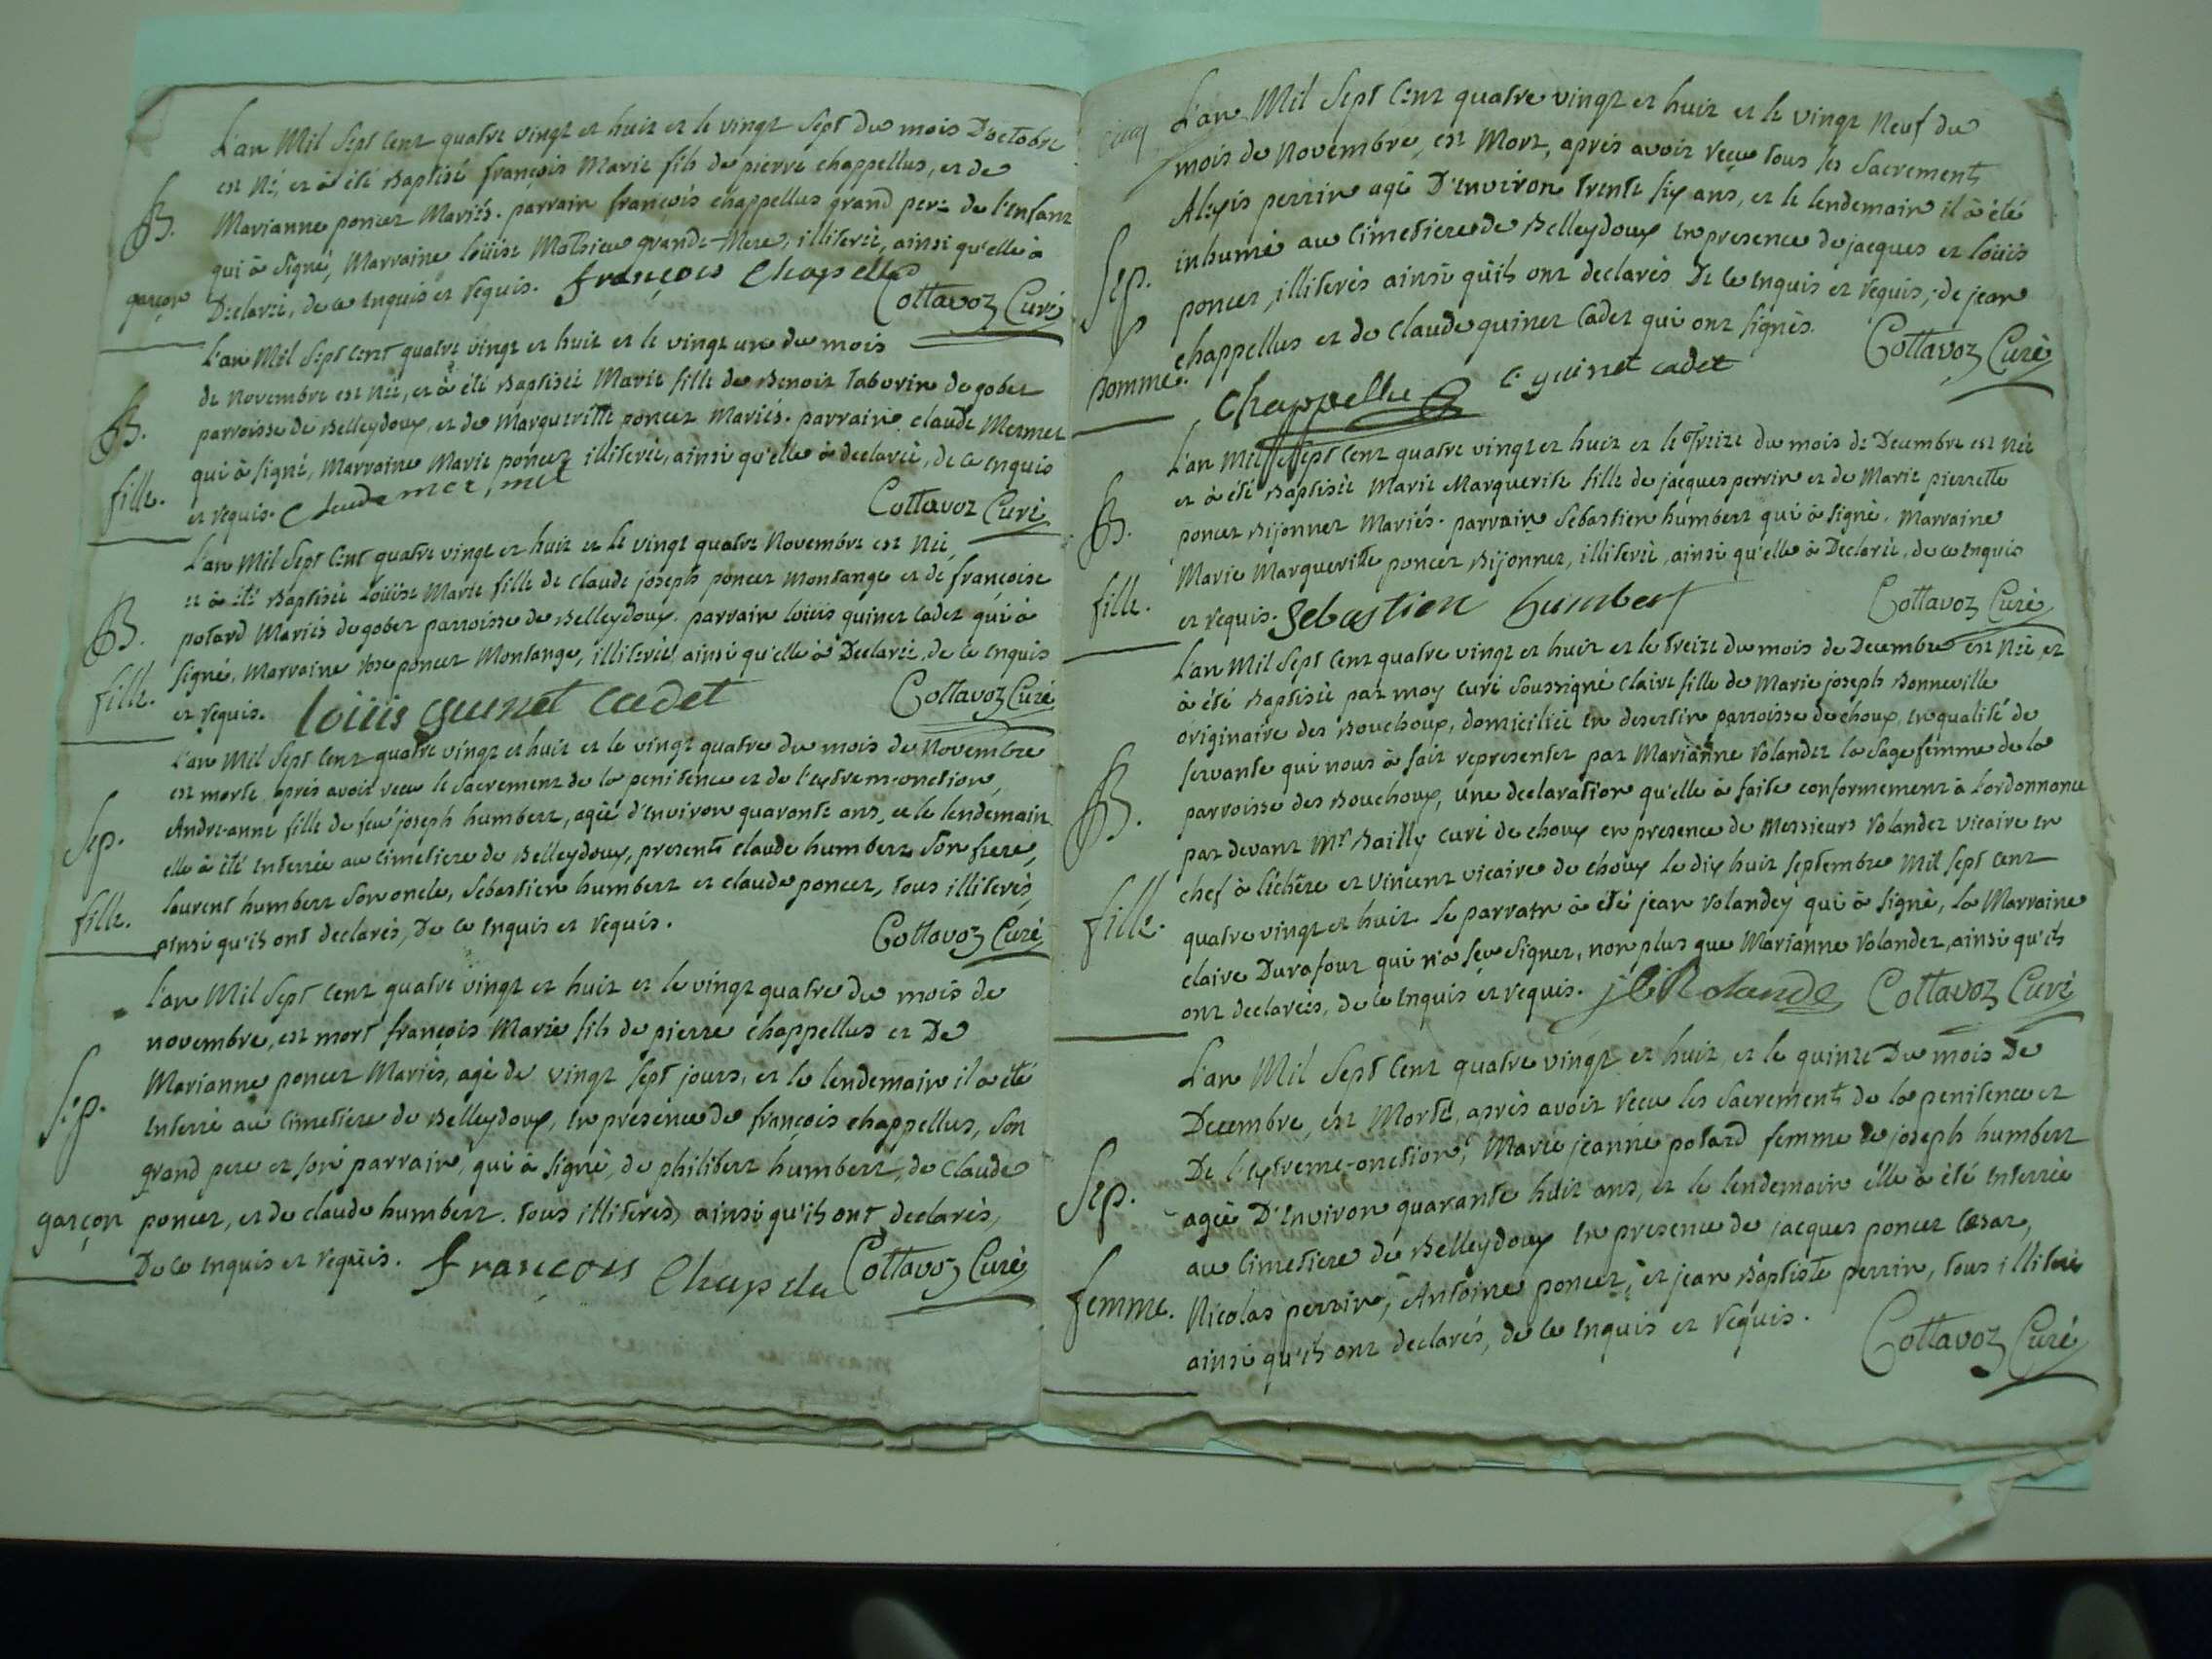 L'an Mil Sept Cent quatre vingt et huit et le vingt Sept du mois D'octobre
est Né, et à été Baptisé françois Marie fils de pierre chappellus, et de
B. Marianne poncet Mariés. parrain françois chappellus grand pere de l'enfant
qui à Signé, Marraine loüise Mathieu grande-Mere, illiterée, ainsi qu'elle à
garçon Declaré, de ce enquis et requis. françois Chapellu
Cottavoz Curé
L'an Mil Sept Cent quatre vingt et huit et le vingt un du mois
de Novembre est Née, et à été Baptisée Marie fille de Benoit taborin de gobet
B. parroisse de Belleydoux, et de Margueritte poncet Mariés. parrain claude Mermet
qui à signé, Marraine Marie poncet illiterée, ainsi qu'elle à declarée, de ce enquis
fille. et requis. Claude mermet
Cottavoz Curé
L'an Mil Sept Cent quatre vingt et huit et le vingt quatre Novembre est Née,
et à été Baptisée Loüise Marie fille de claude joseph poncet Montange et de françoise
B. potard Mariés de gobet parroisse de Belleydoux. parrain loüis guinet cadet qui à
Signé, Marraine Rose poncet Montange, illiterée, ainsi qu'elle à Declarée, de ce enquis
fille. et requis. loüis guinet cadet Cottavoz Curé
L'an Mil Sept Cent quatre vingt et huit et le vingt quatre du mois de Novembre
est morte, après avoir recu le Sacrement de la penitence et de l'extrem-onction,
Sep. Andre-anne fille de feu joseph humbert, agée d'environ quarante ans, et le lendemain
elle à été Enterrée au cimetiere de Belleydoux, presents claude humbert Son frere,
Laurent humbert Son oncle, Sebastien humbert et claude poncet, tous illiterés,
fille. ainsi qu'ils ont declarés, De ce enquis et requis. Cottavoz Curé
L'an Mil Sept Cent quatre vingt et huit et le vingt quatre du mois de
novembre, est mort françois Marie fils de pierre chappellus et De
Sep. Marianne poncet Mariés, agé de vingt Sept jours, et le lendemain il a été
Enterré au cimetiere de Belleydoux, en presence de françois chappellus, Son
grand pere et son parrain, qui à signé, de philibert humbert, de claude
garçon poncet, et de claude humbert. tous illiterés, ainsi qu'ils ont declarés,
De ce enquis et requis. françois Chapelu Cottavoz Curé
L'an Mil Sept Cent quatre vingt et huit et le vingt Neuf du
mois de Novembre, est Mort, après avoir recu tous les Sacrements
Alexis perrin agé D'environ trente six ans, et le lendemain il à été
Sep. inhumé au Cimetiere de Belleydoux en presence de jacques et loüis
poncet, illiterés ainsi qu'ils ont declarés De ce enquis et requis, de jean
homme. chappellus et de claude guinet cadet qui ont signés. Cottavoz Curé
Chappellu c guinet cadet
L'an Mil Sept Cent quatre vingt et huit et le Treize du mois de Decembre est Née
et à été Baptisée Marie Marguerite fille de jacques perrin et de Marie pierrette
B. poncet Bijonnet Mariés. parrain Sebastien humbert qui à signé. Marraine
Marie Margueritte poncet Bijonnet, illiterée, ainsi qu'elle à Declarée, de ce enquis
fille. et requis. Sebastien humbert Cottavoz Curé
L'an Mil Sept Cent quatre vingt et huit et le treize du mois de Decembre est Née, et
à été Baptisée par moy curé Soussigné Claire fille de Marie joseph Bonneville
originaire des Bouchoux, domiciliée en desertin parroisse de choux, en qualité de
servante qui nous à fait representer par Marianne Rolandet la Sage femme de la
B. parroisse des Bouchoux, une declaration qu'elle à faite conformement à L'ordonnance
par devant Mr Bailly curé de choux en presence de Messieurs Rolandez vicaire en
chef à l'échere et vincent vicaire de choux le dix huit Septembre Mil Sept Cent
fille. quatre vingt et huit. le parrain à été jean Rolandez qui à signé, la Marraine
claire Durafour qui n'a sçu signer, non plus que Marianne Rolandet, ainsi qu'ils
ont declarés, de ce enquis et requis. Rolandez Cottavoz Curé
L'an Mil Sept Cent quatre vingt et huit, et le quinze Du mois De
Decembre, est Morte, après avoir recu les Sacrements de la penitence et
De l'extreme-onction, Marie jeanne potard femme de joseph humbert
Sep. agée D'environ quarante huit ans, et le lendemain elle à été Enterrée
au Cimetiere de Belleydoux en presence de jacques poncet Cesar,
femme. Nicolas perrin, Antoine poncet, et jean Baptiste perrin, tous illiterés
ainsi qu'ils ont declarés, de ce enquis et requis.
Cottavoz Curé